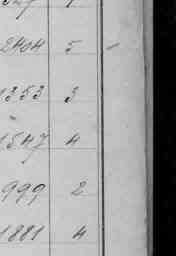 2404 5
1353 3
1547 4
999 2
1881 4